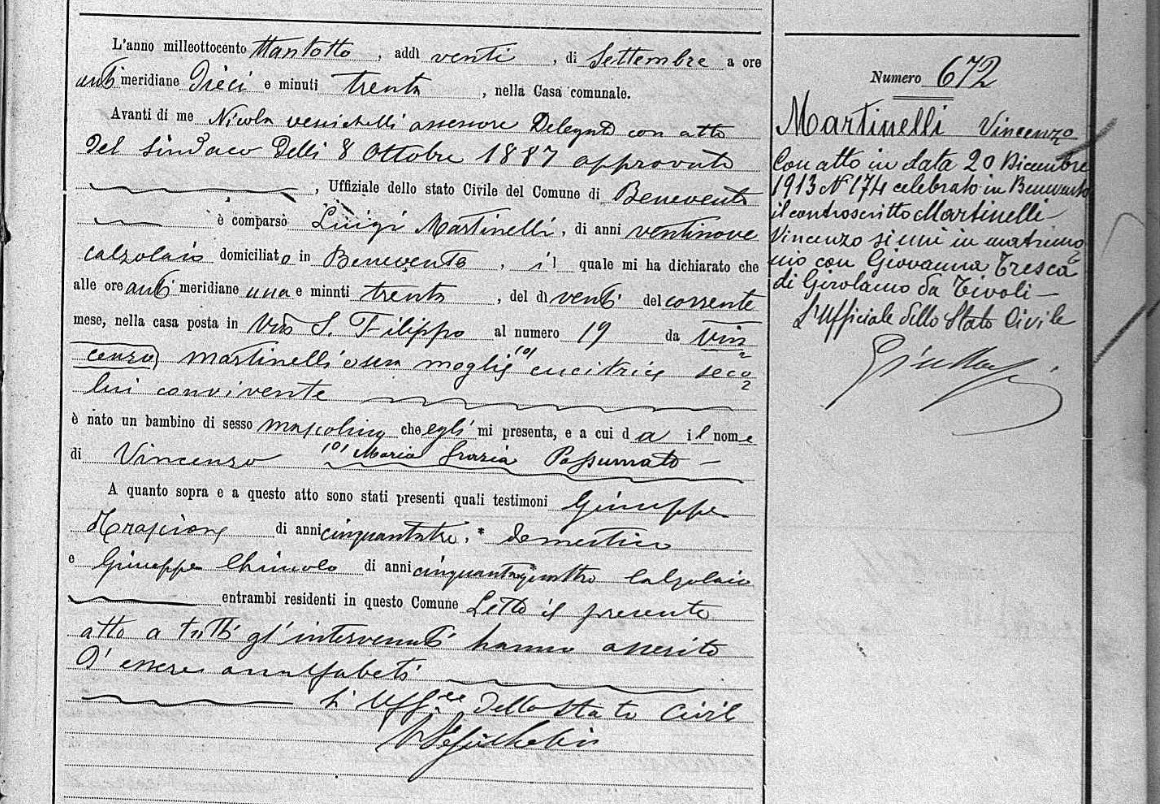 L'anno milleottocento ttantotto, addì venti, di Settembre a ore
anti meridiane Dieci e minuti trenta, nella Casa comunale.
Avanti di me Nicola assessore Delegato con atto
del Sindaco delli 8 Ottobre 1887 approvato
, Uffiziale dello stato Civile del Comune di Benevento
è comparso Luigi Martinelli, di anni ventinove
calzolaio domiciliato in Benevento, il quale mi ha dichiarato che
alle ore anti meridiane una e minuti trenta, del dì venti del corrente
mese, nella casa posta in Via S. Filippo al numero 19 da Vin
cenza martinelli sua moglie (a) cucitrice seco
lui convivente
è nato un bambino di sesso mascolino che egli mi presenta, e a cui dà il nome
di Vincenzo (a) Maria Grazia
A quanto sopra e a questo atto sono stati presenti quali testimoni Giuseppe
di anni cinquantatre, domestico
e Giuseppe di anni cinquantaquattro Calzolaio
entrambi residenti in questo Comune Letto il presente
atto a tutti gl'intervenuti hanno asserito
d'essere analfabeti
L'Uff.le dello Stato Civil
Numero 672
Martinelli Vincenzo
Con atto in data 20 Dicembre
1913 N 174 celebrato in Benevento
il controscritto Martinelli
Vincenzo si unì in matrimo
nio con Giovanna Tresca
di Girolamo da Tivoli
L'Ufficiale dello Stato Civile